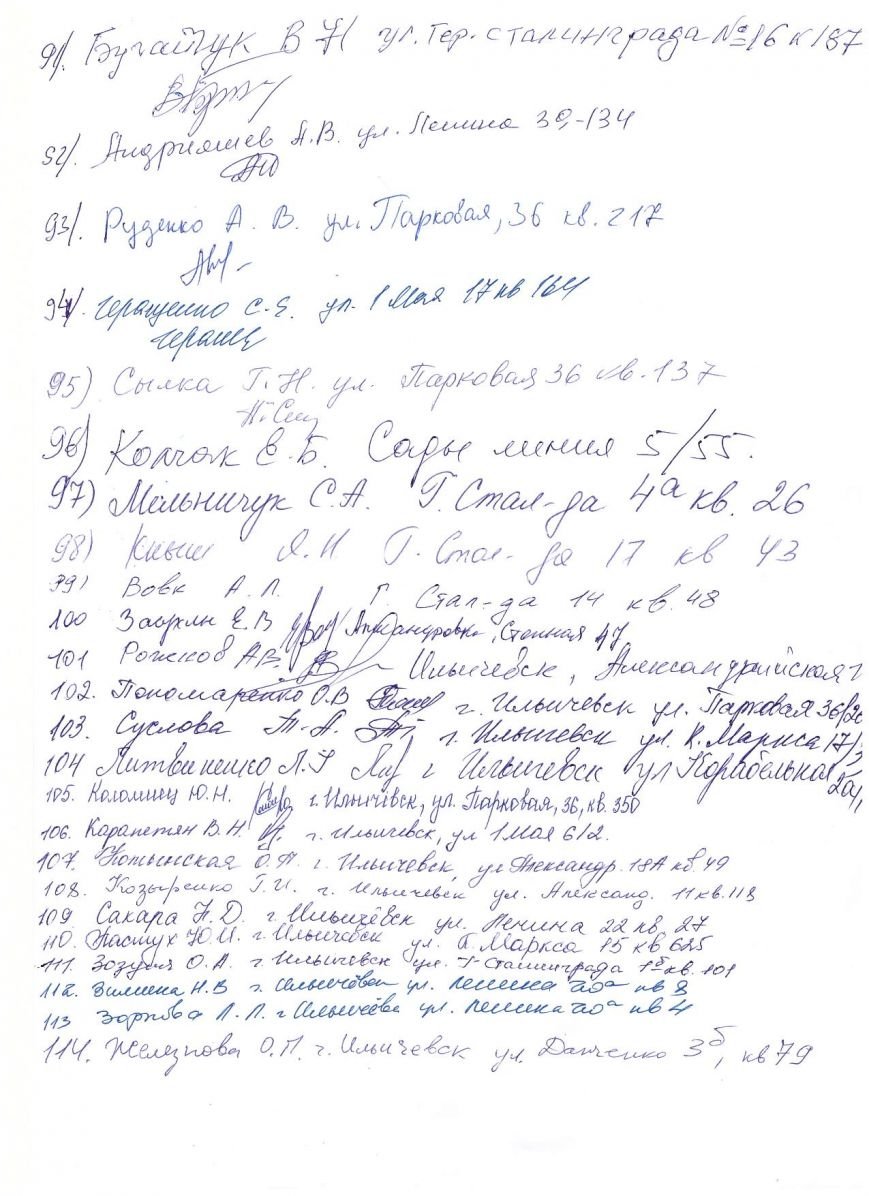 91). Бугайчук В ул. Гер. сталинграда № 16 к 187
92). Андрияшев А.В. ул. Ленина 39,-134
93). Руденко А. В. ул. Парковая, 36 кв. 217
94). Геращенко С.Е. ул. 1 Мая 17 кв 164
Геращ
95) Сылка Г. Н. ул. Парковая 36 кв. 137
96) Колчак Е. Б. Сады линия 5/55.
97) Мельничук С.А. Г. Стал-да 4а кв. 26
98) Кныш Л. И Г. Стал-да 17 кв 43
99) Вовк А. Л. Г. Стал-да 14 кв. 48
100 Е. В Степная 47
101 Рожков А В. Ильичевск, Александрийская
102. Пономаренко О. В г. Ильичевск ул. Парковая 36/
103. Суслова Т-А. г. Ильичевск ул. К. Маркса 17/
104 Литвиненко Л. г Ильичевск ул Корабельная
105. Коломиец Ю. Н. г. Ильичевск, ул. Парковая, 36, кв. 350
106. Карапетян В. Н. г. Ильичевск, ул 1 Мая 6/2.
107. О. г. Ильичевск, ул Александр. 18А кв. 49
108. Козыренко Г. И. г. Ильичевск ул. Александ. 11 кв. 118
109 Сахара Н. Д. г. Ильичёвск ул. Ленина 22 кв. 27
110. Пастух Ю. И. г. Ильичевск ул. К. Маркса 15 кв 685
111. Зозуля О. А. г. Ильичевск ул. Г-Сталинграда 1б кв. 101
112. Зимина Н. В г. ул. Ленина 20а кв 8
113 Л. Л. г ул. Ленина 20а кв 4
114. Железнова О. П. г. Ильичевск ул. Данченко 3б, кв 79